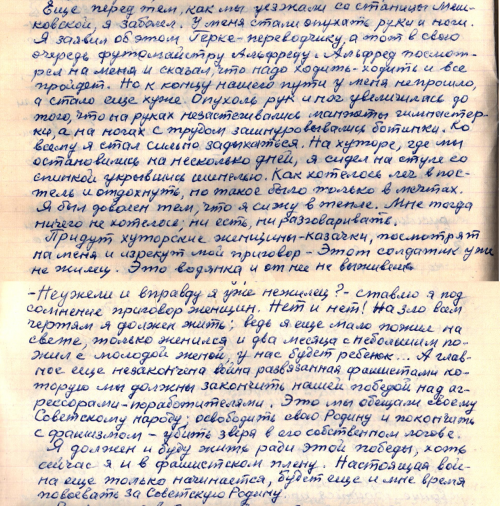 Еще перед тем, как мы уезжали со станицы Меш-
ковской, я заболел. У меня стали опухать руки и ноги.
Я заявил об этом Герке-переводчику, а тот в свою
очередь футомайстру Альфреду. Альфред посмот-
рел на меня и сказал, что надо ходить-ходить и все
пройдет. Но к концу нашего пути у меня не прошло,
а стало еще хуже. Опухоль рук и ног увеличилась до
того, что на руках незастегивались манжеты гимнастер-
ки, а на ногах с трудом зашнуровывались ботинки. Ко
всему я стал сильно задыхаться. На хуторе, где мы
остановились на несколько дней, я сидел на стуле со
спинкой укрывшись шинелью. Как хотелось лечь в пос-
тель и отдохнуть, но такое было только в мечтах.
Я был доволен тем, что я сижу в тепле. Мне тогда
ничего не хотелось, ни есть, ни разговаривать.
Придут хуторские женщины-казачки, посмотрят
на меня и изрекут мой приговор - Этот солдатик уже
не жилец. Это водянка и от нее не выживешь
- Неужели и вправду я уже нежилец? - ставлю я под
сомнение приговор женщин. Нет и нет! На зло всем
чертям я должен жить; ведь я еще мало пожил на
свете, только женился и два месяца с небольшим по-
жил с молодой женой, у нас будет ребенок... А глав-
ное еще незакончена война развязанная фашистами ко-
торую мы должны закончить нашей победой над аг-
рессорами-поработителями. Это мы обещали своему
Советскому народу: освободить свою Родину и покончить
с фашизмом - убить зверя в его собственном логове.
Я должен и буду жить ради этой победы, хоть
сейчас я и в фашистском плену. Настоящая вой-
на еще только начинается, будет еще и мне время
повоевать за Советскую Родину.